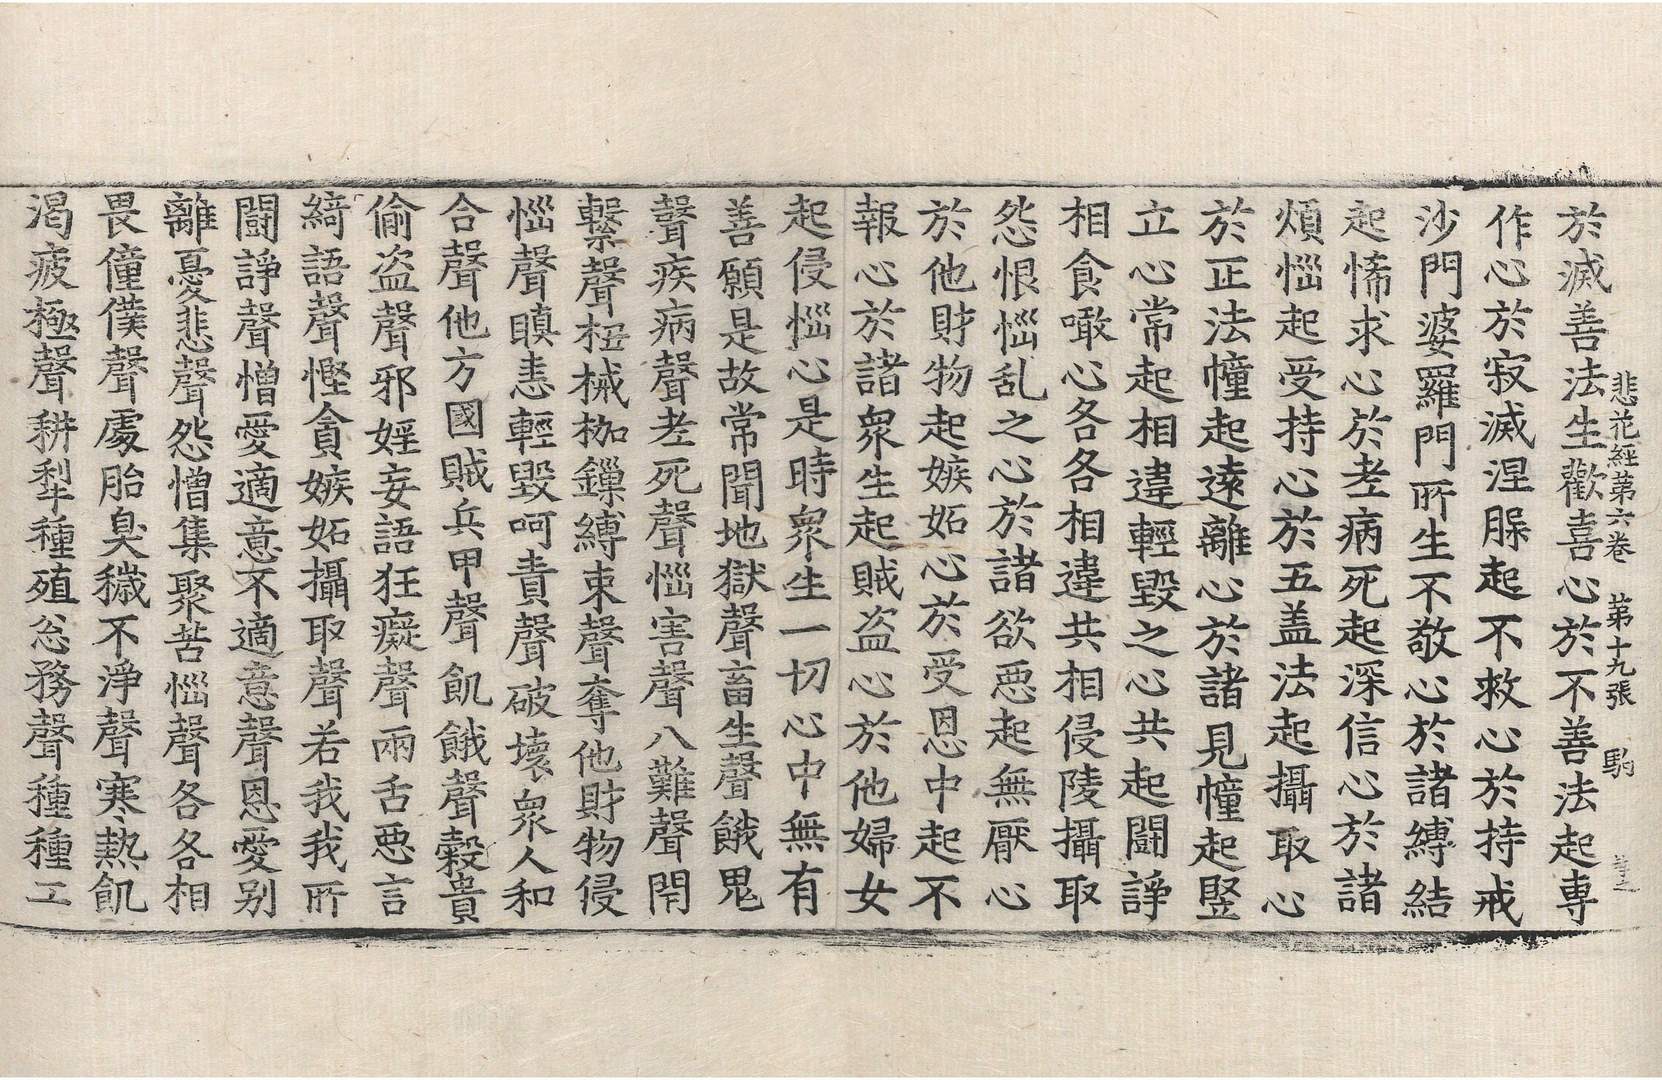 悲花經第六卷 第十九張 駒
於滅善法生歡喜心於不善法起専
作心於寂滅涅脲起不救心於持戒
沙門婆羅門所生不敬心於諸縛結
起悕求心於老病死起深信心於諸
煩惱起受持心於五盖法起攝取心
於正法幢起遠離心於諸見幢起竪
立心常起相違輕毀之心共起闘諍
相食噉心各各相違共相侵陵攝取
怨恨惱乱之心於諸欲惡起無厭心
於他財物起嫉妬心於受恩中起不
報心於諸衆生起賊盗心於他婦女
起侵惱心是時衆生一切心中無有
善願是故常聞地獄聲畜生聲餓鬼
聲疾病聲老死聲惱害聲八難聲閇
繫聲杻械枷鏁縛束聲奪他財物侵
惱聲瞋恚輕毀呵責聲破壞衆人和
合聲他方國賊兵甲聲飢餓聲穀貴
偷盗聲邪婬妄語狂癡聲兩舌惡言
綺語聲慳貪嫉妬攝取聲若我我所
闘諍聲憎愛適意不適意聲恩愛别
離憂悲聲怨憎集聚苦惱聲各各相
畏僮僕聲處胎臭穢不淨聲寒熱飢
渴疲極聲耕犁種殖忩務聲種種工